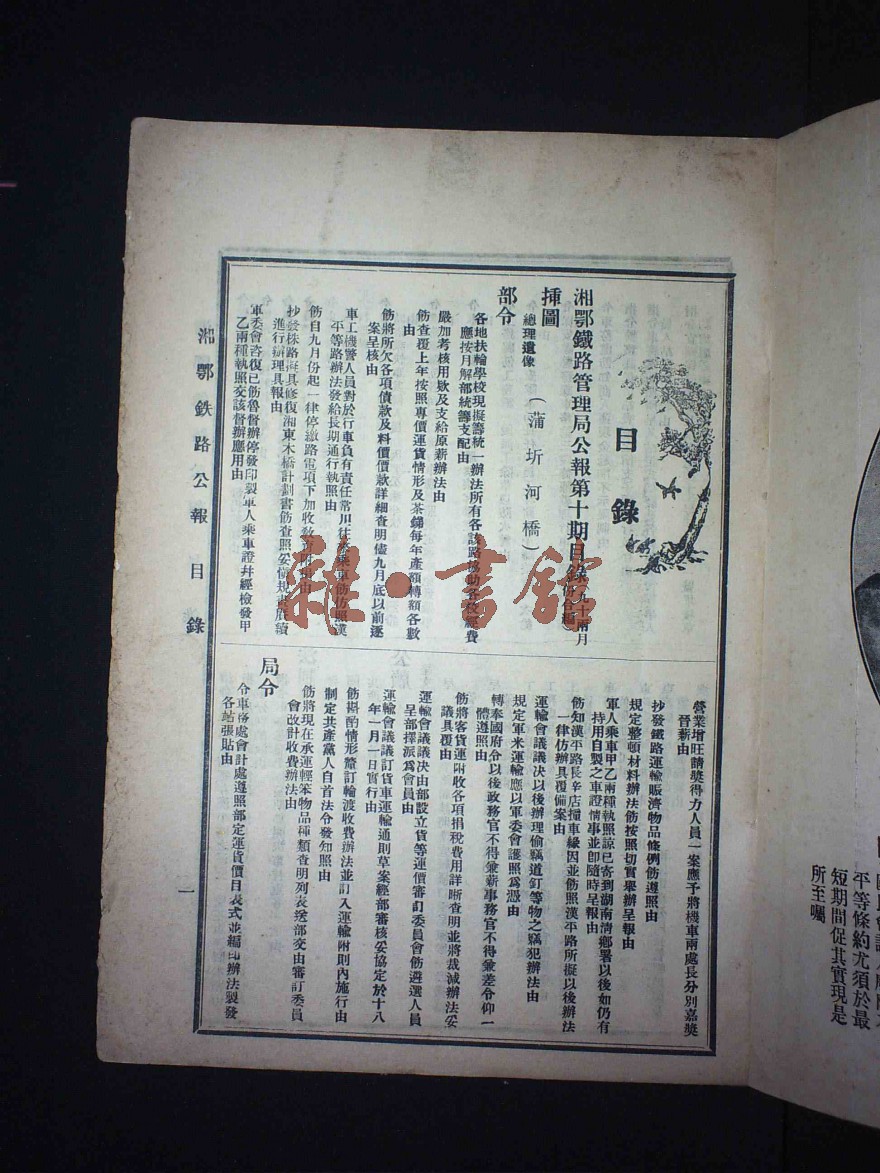 目錄
湘鄂鐵路管理局公報第十期目錄
揷圖
總理遺像
（蒲圻河橋）
部令
各地扶輪學校現擬籌統一辦法所有各該路協助各校經費
應按月解部統籌支配由
嚴加考核用欵及支給原薪辦法由
飭查復上年按照專價運貨情形及茶銻每年產額轉額各數
由
飭將所欠各項債款及料價價款詳細查明儘九月底以前逐
案呈核由
車工機警人員對於行車負有責任常川往來乘車飭仿照漢
平等路辦法發給長期通行執照由
飭自九月份起一律停繳路電項下加收
抄發株路
具修復湘東木橋計劃書飭查照妥
進行辦理具報由
軍委會咨復已飭魯督辦停發印製軍人乘車證幷經檢發甲
乙兩種執照交該督辦應用由
營業增旺請奬得力人員一案應予將機車兩處長分別嘉奬
晉薪由
抄發鐵路運輸賑濟物品條例飭遵照由
規定整頓材料辦法飭按照切實舉辦呈報由
軍人乘車甲乙兩種執照諒已寄到湖南清鄉署以後如仍有
持用自製之車證情事並卽隨時呈報由
飭知漢平路長辛店撞車緣因並飭照漢平路所擬以後辦法
一律仿辦具覆備案由
運輸會議議決以後辦理偷竊道釘等物之竊犯辦法由
規定軍米運輸應以軍委會護照爲憑由
轉奉國府令以後政務官不得兼薪事務官不得兼差令仰一
體遵照由
飭將客貨運附收各項捐稅費用詳晰查明並將裁減辦法妥
議具覆由
運輸會議議決由部設立貨等運價審訂委員會飭遴選人員
呈部擇派爲會員由
運輸會議議訂貨車運輸通則草案經部審核妥協定於十八
年一月一日實行由
飭斟酌情形釐訂輪渡收費辦法並訂入運輸附則內施行由
制定共產黨人自首法令發知照由
飭將現在承運輕笨物品種類查明列表送部交由審訂委員
會改計收費辦法由
局令
令車務處會計處遵照部定運貨價目表式並編印辦法製發
各站張貼由
湘鄂鉄路公報 目錄
一
雜·書館
平等條約尤須於最
短期間促其實現是
所至囑